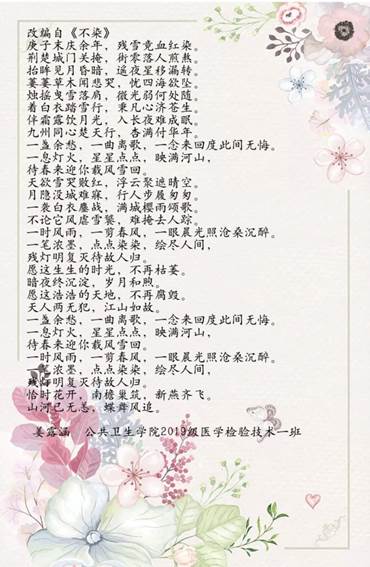 改编自《不染》
庚子末庆余年,残雪竟血红染。
荆楚城门关掩,街零落人煎熬。
抬眸见月昏暗,遥夜星移漏转。
萋萋草木闻悲哭,忧四海欲坠
烛摇曳雪落肩,微光弱何处随。
着白衣踏雪行,秉凡心济苍生。
伴霜露饮月光,入长夜难成眠。
九州同心楚天行,杏满付华年。
一盏余愁,一曲离歌,一念来回度此间无悔。
一息灯火,星星点点,映满河山,
待春来迎你载风雪回。
天欲雪哭败红,浮云聚遮晴空。
月隐没城难寐,行人步履匆匆。
一袭白衣鏖战,满城樱雨颂歌。
不论它风虐雪饕,难掩去人踪。
一时风雨,一剪春风,一眼晨光照沧桑沉醉。
一笔浓墨,点点染染,绘尽人间,
残灯明复灭待故人归。
愿这生生的时光,不再枯萎。
暗夜终沉淀,岁月和煦。
愿这浩浩的天地,不再腐毁。
天人两无犯,江山如故。
一盏余愁,一曲离歌,一念来回度此间无悔。
一息灯火,星星点点,映满河山,
待春来迎你载风雪回。
一时风雨,一剪春风,一眼晨光照沧桑沉醉。
一笔浓墨,点点染染,绘尽人间,
残灯明复灭待故人归。
恰时花开,南檐巢筑,新燕齐飞。
山河已无恙,蝶舞风追。
姜露涵 公共卫生学院2019级医学检验技术一班